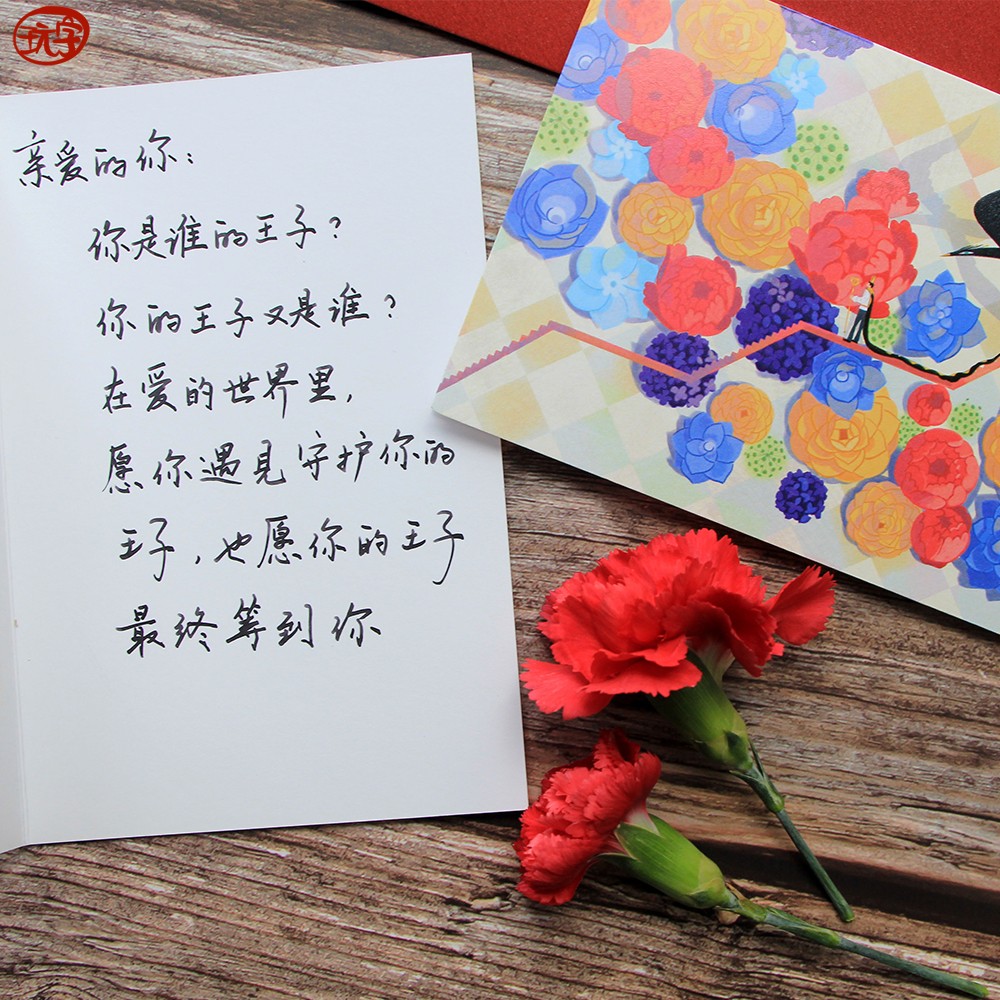 玩字
亲爱的你：
你是谁的王子？
你的王子又是谁？
在爱的世界里，
愿你遇见守护你的
王子，也愿你的王子
最终等到你